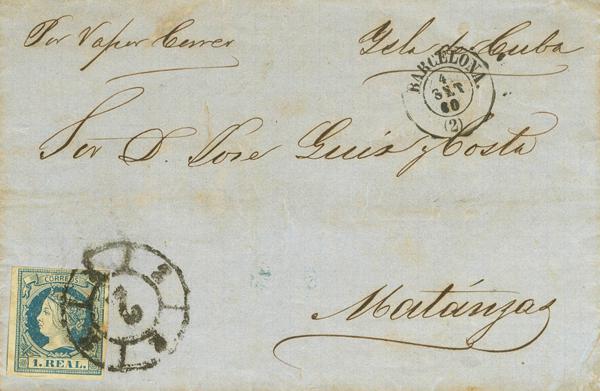 Por Vapor Correo
Isla de Cuba
BARCELONA.
4
SET
60
(2)
Sor D. Jose Guix y Costa
Matánzas
CORREOS
1. REAL.
2